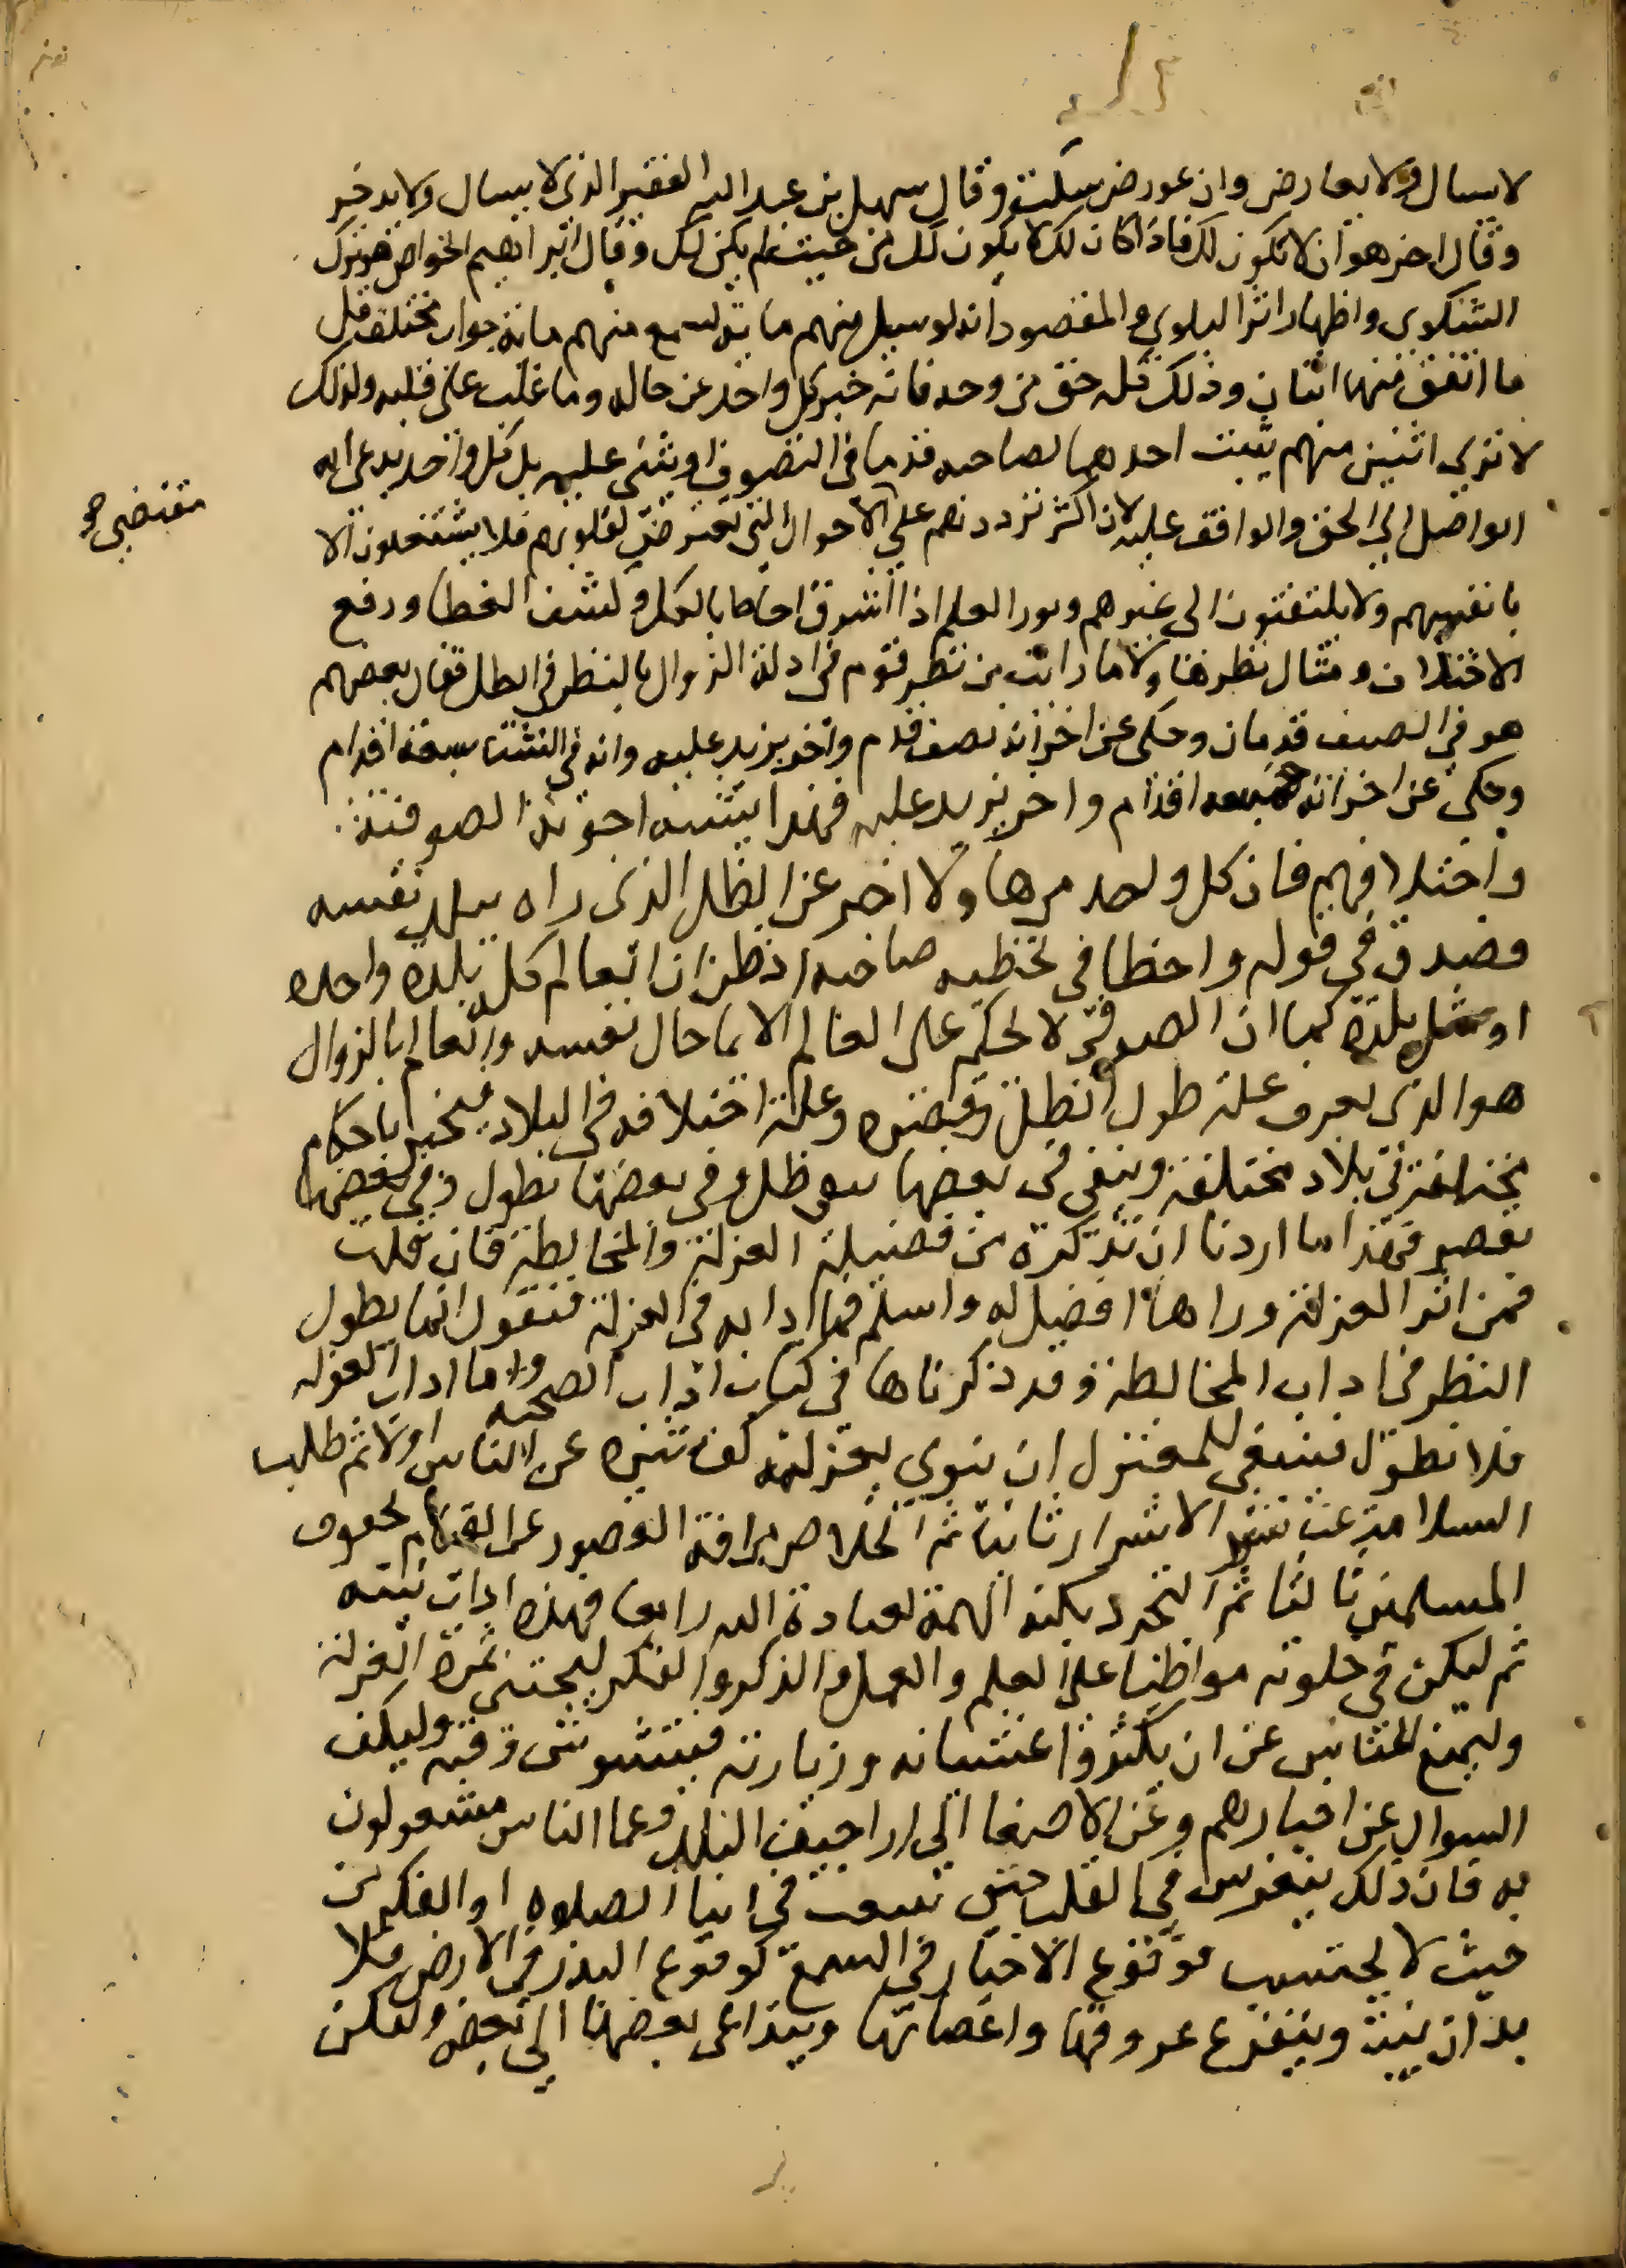 لا يسال ولا يعارض وان عورض سكت وقال سهل بن عبد الله الفقير الذى لا يسال ولا يدخر
وقال اخر هو ان لا يكون لك فاذا كان لك لا يكون لك من حيث لم يكن لك وقال ابراهيم الخواص هو ترك
الشكوى واظهار اثر البلوى والمقصود انه لو سيل منهم ماية لسمع منهم ماية جواب مختلف قل
ما اتفق منها اثنان وذلك كله حق من وجه فانه خبر كل واحد عن حاله وما غلب على قلبه ولذلك
لا ترى اثنين منهم يثبت احدهما لصاحبه قدما فى التصوف او يثنى عليه بل كل واحد يدعى انه
الواصل الى الحق والواقف عليه لان اكثر ترددهم على الاحوال التى تعترض لقلوبهم فلا يشتغلون الا
بانفسهم ولا يلتفتون الى غيرهم ونور العلم اذا اشرق احاط بالكل وكشف الغطا ورفع
الاختلاف ومثال نظر هاولا ما رايت من نظر قوم فى ادلة الزوال بالنظر فى الظل فقال بعضهم
هو فى الصيف قدمان وحكى عن اخر انه نصف قدم واخر يزيد عليه وانه فى الشتا سبعة اقدام
وحكى عن اخر انه خمسة اقدام واخر يزيد عليه فهذا يشبه اجوبة الصوفية
واختلافهم فان كل واحد من هاولا اخبر عن الظل الذى راه ببلد نفسه
فصدق فى قوله واخطا فى تخطيه صاحبه اذ ظن ان العالم كله بلدة واحده
او مثل بلدة كما ان الصوفى لا يحكم على العالم الا بما حال نفسه والعالم بالزوال
هو الذى يعرف علة طول الظل وقصره وعلة اختلافه فى البلاد فيخبر باحكام
مختلفة فى بلاد مختلفة ويبقى فى بعضها ظل وفى بعضها يطول وفى بعضها
يقصر فهذا ما اردنا ان نذكره من فضيلة العزلة والمخالطة فان قلت
فمن اثر العزلة وراها افضل له واسلم فما ادابه فى العزلة فنقول انما يطول
النظر فى اداب المخالطة وقد ذكرناها فى كتاب اداب الصحبه واما اداب العزله
فلا تطول فينبغى للمعتزل ان ينوى بعزلته كف شره عن الناس اولا ثم طلب
السلامة عن شر الاشرار ثانيا ثم الخلاص من افة القصور عن القيام بحقوق
المسلمين ثالثا ثم التجرد بكنه الهمة لعبادة الله رابعا فهذه اداب نيته
ثم ليكن فى خلوته مواظبا على العلم والعمل والذكر والفكر ليجتنى ثمرة العزلة
وليمنع الناس عن ان يكثروا غشيانه وزيارته فيتشوش وقته وليكف
السوال عن اخبارهم وعن الاصغا الى اراجيف البلد وعما الناس مشغولون
به فان ذلك ينغرس فى القلب حتى تنبعث فى اثنا الصلاه او الفكر من
حيث لا يحتسب فوقوع الاخبار فى السمع كوقوع البذر فى الارض فلا
بد ان ينبت ويتفرع عروقها واغصانها ويتداعى بعضها الى بعض وليكن
مقتضى